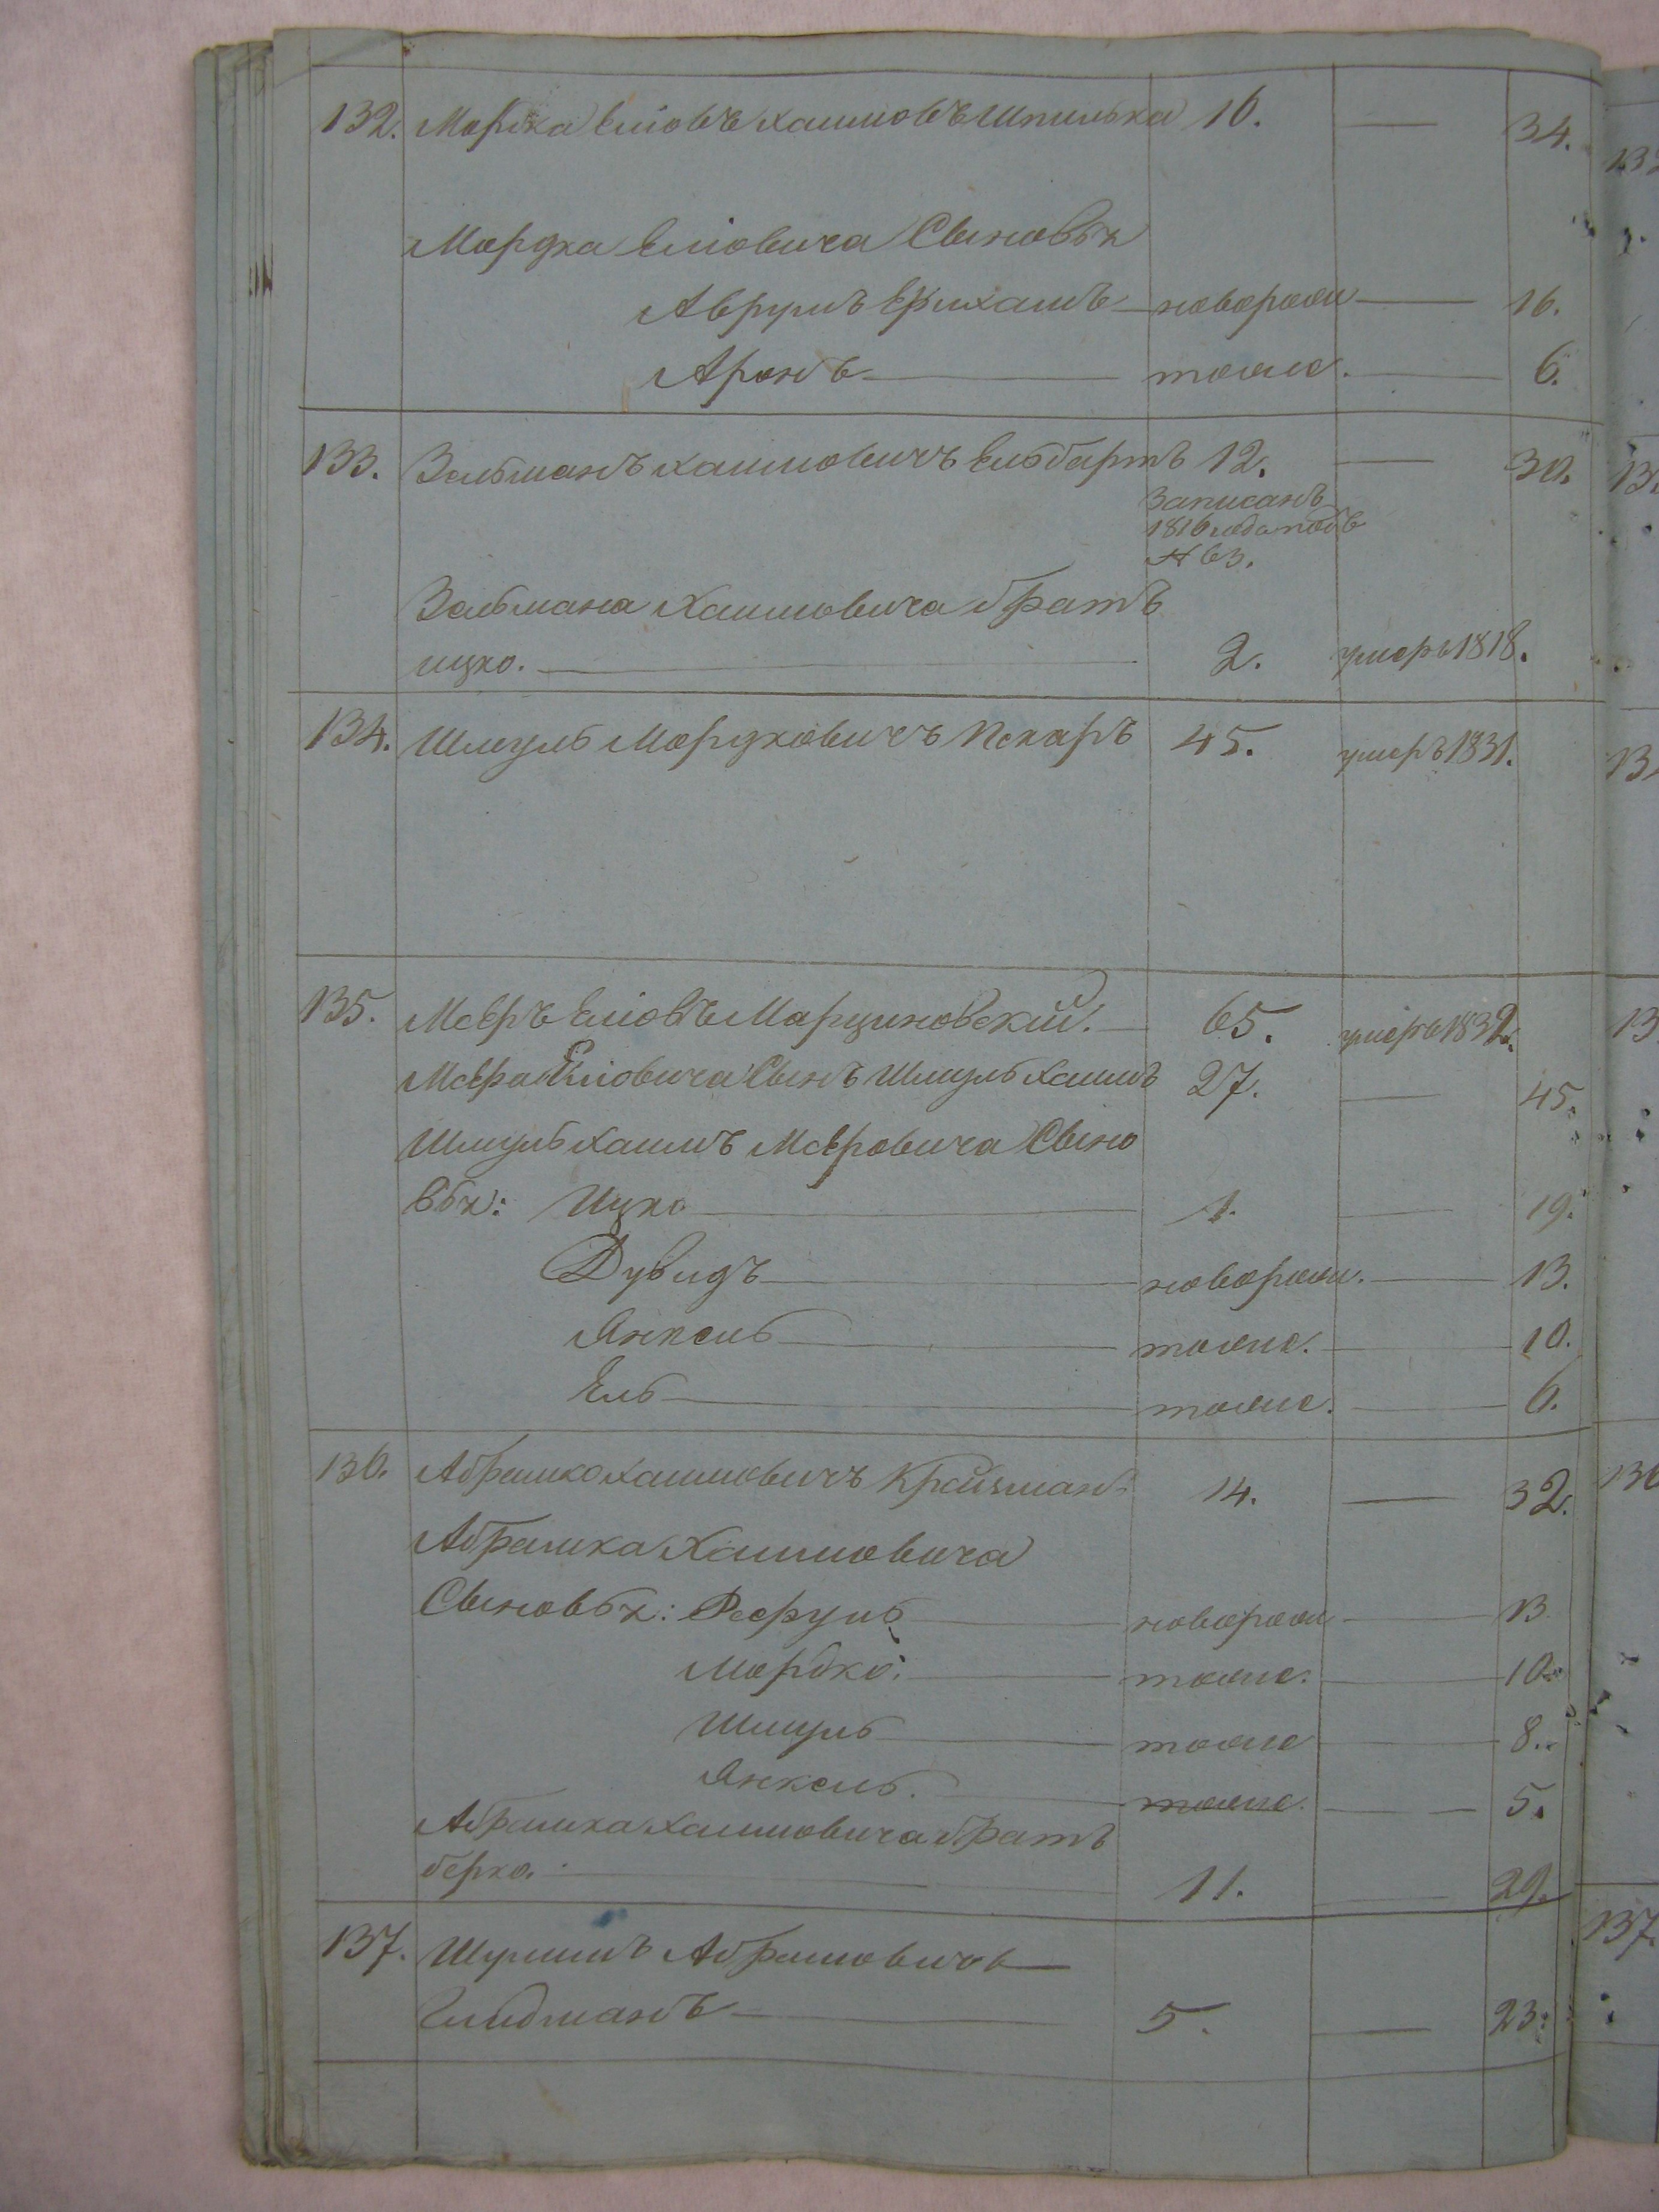 132. Мордка Еліовъ Хаимовъ Шпилька 16. — 34.
Мордка Еліовича Сыновья
Аврумъ Ефихаимъ — новорож — 16.
Аронъ — тоже. — 6.
133. Зельманъ Хаимовичъ Ельбартъ 12. — 30.
Записанъ
1816 года подъ
№ 63.
Зельмана Хаимовича братъ
ицко. — 2. умеръ 1818.
134. Шмуль Мордковичъ Пекаръ 45. умеръ 1831.
135. Меѣръ Еліовъ Марциновскій. — 65. умеръ 1832.
Меѣра Еліовича Сынъ Шмуль Хаимъ 27. — 45.
Шмуль Хаимъ Меѣровича Сыно
вья: Ицко — 1. — 19.
Дувидъ — новорож. — 13.
Янкель — тоже. — 10.
Ель — тоже. — 6.
136. Абрамко Хаимовичъ Крайзман 14. — 32.
Абрамка Хаимовича
Сыновья: — новорож — 13
Мордко: — тоже. — 10.
Шмуль — тоже — 8.
Янкель. — тоже. — 5.
Абрамка Хаимовича братъ
берко. — 11. — 29.
137. Шулимъ Абрамовичъ —
— 5. — 23.